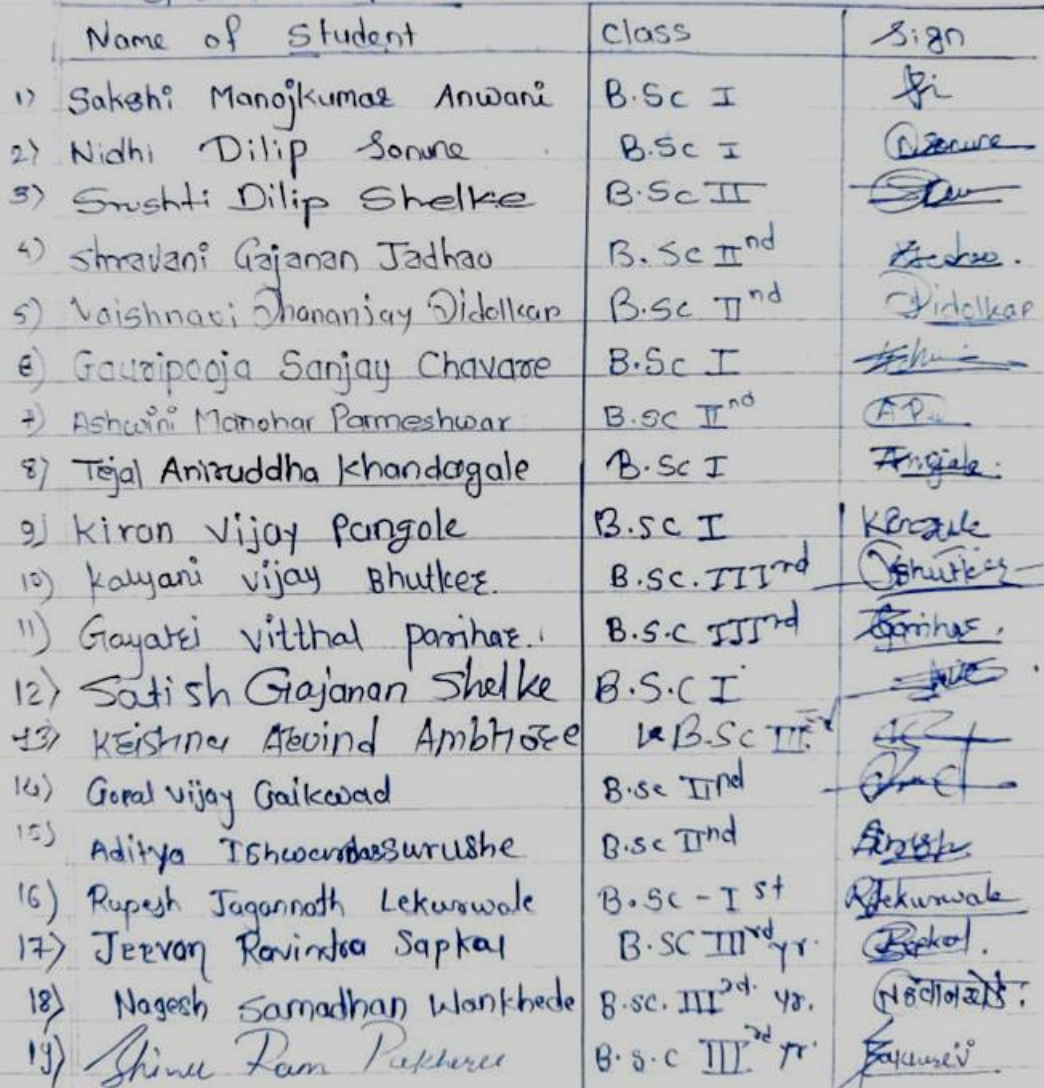 Name of Student Class Sign
1) Sakshi Manojkumar Anwani B.Sc I
2) Nidhi Dilip Sonune B.Sc I DSonune
3) Srushti Dilip Shelke B.Sc II
4) Shravani Gajanan Jadhao B.Sc II nd
5) Vaishnavi Dhananjay Didolkar B.Sc II nd Didolkar
6) Gauripooja Sanjay Chavare B.Sc I
7) Ashwini Manohar Parmeshwar B.SC II nd A P
8) Tejal Aniruddha Khandagale B.Sc I
9) Kiran Vijay Pangole B.SC I
10) Kalyani vijay Bhutker. B.SC. III rd Bhutker
11) Gayatri vitthal parihar. B.S.C III rd Parihar.
12) Satish Gajanan Shelke B.S.C I
13) Krishna Arvind Ambhore B.Sc III rd
14) Gopal vijay Gaikwad B.sc II nd
15) Aditya Ishwardas Surushe B.sc II nd
16) Rupesh Jagannath Lekurwale B.Sc - I st RJLekurwale
17) Jeevan Ravindra Sapkal B.SC III rd yr. Sapkal.
18) Nagesh Samadhan Wankhede B.SC. III rd. yr.
19) Ram B.S.C III rd yr.